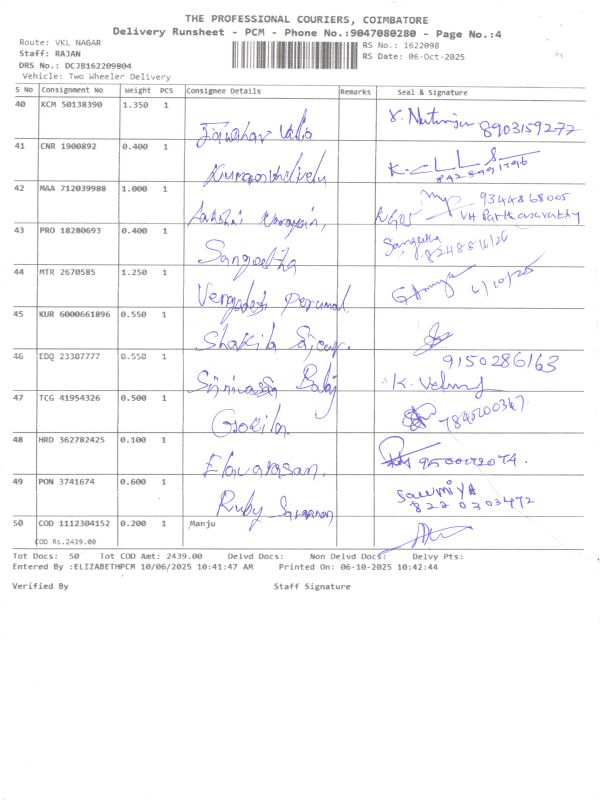 THE PROFESSIONAL COURIERS, COIMBATORE
Delivery Runsheet - PCM - Phone No.:9047080280 - Page No.:4
Route: VKL NAGAR
Staff: RAJAN
DRS No.: DCJB162209804
Vehicle: Two Wheeler Delivery
RS No.: 1622098
RS Date: 06-Oct-2025
S No Consignment No Weight PCS Consignee Details Remarks Seal & Signature
40 KCM 50138390 1.350 1 8903159277
41 CNR 1900892 0.400 1
42 MAA 712039988 1.000 1 9344868005
43 PRO 18280693 0.400 1 Sangeetha Sangeetha
44 MTR 2670585 1.250 1 Vengadesh Perumal 6/10/25
45 KUR 6000661896 0.550 1 Shakila
46 EDQ 23307777 0.550 1 Srinivasan 9150286163
47 TCG 41954326 0.500 1 Gokila
48 HRD 362782425 0.100 1 Elavarasan
49 PON 3741674 0.600 1 Ruby Saravanan Sowmiya
8220303472
50 COD 1112304152 0.200 1 Manju
COD Rs.2439.00
Tot Docs: 50 Tot COD Amt: 2439.00 Delvd Docs: Non Delvd Docs: Delvy Pts:
Entered By :ELIZABETHPCM 10/06/2025 10:41:47 AM Printed On: 06-10-2025 10:42:44
Verified By Staff Signature